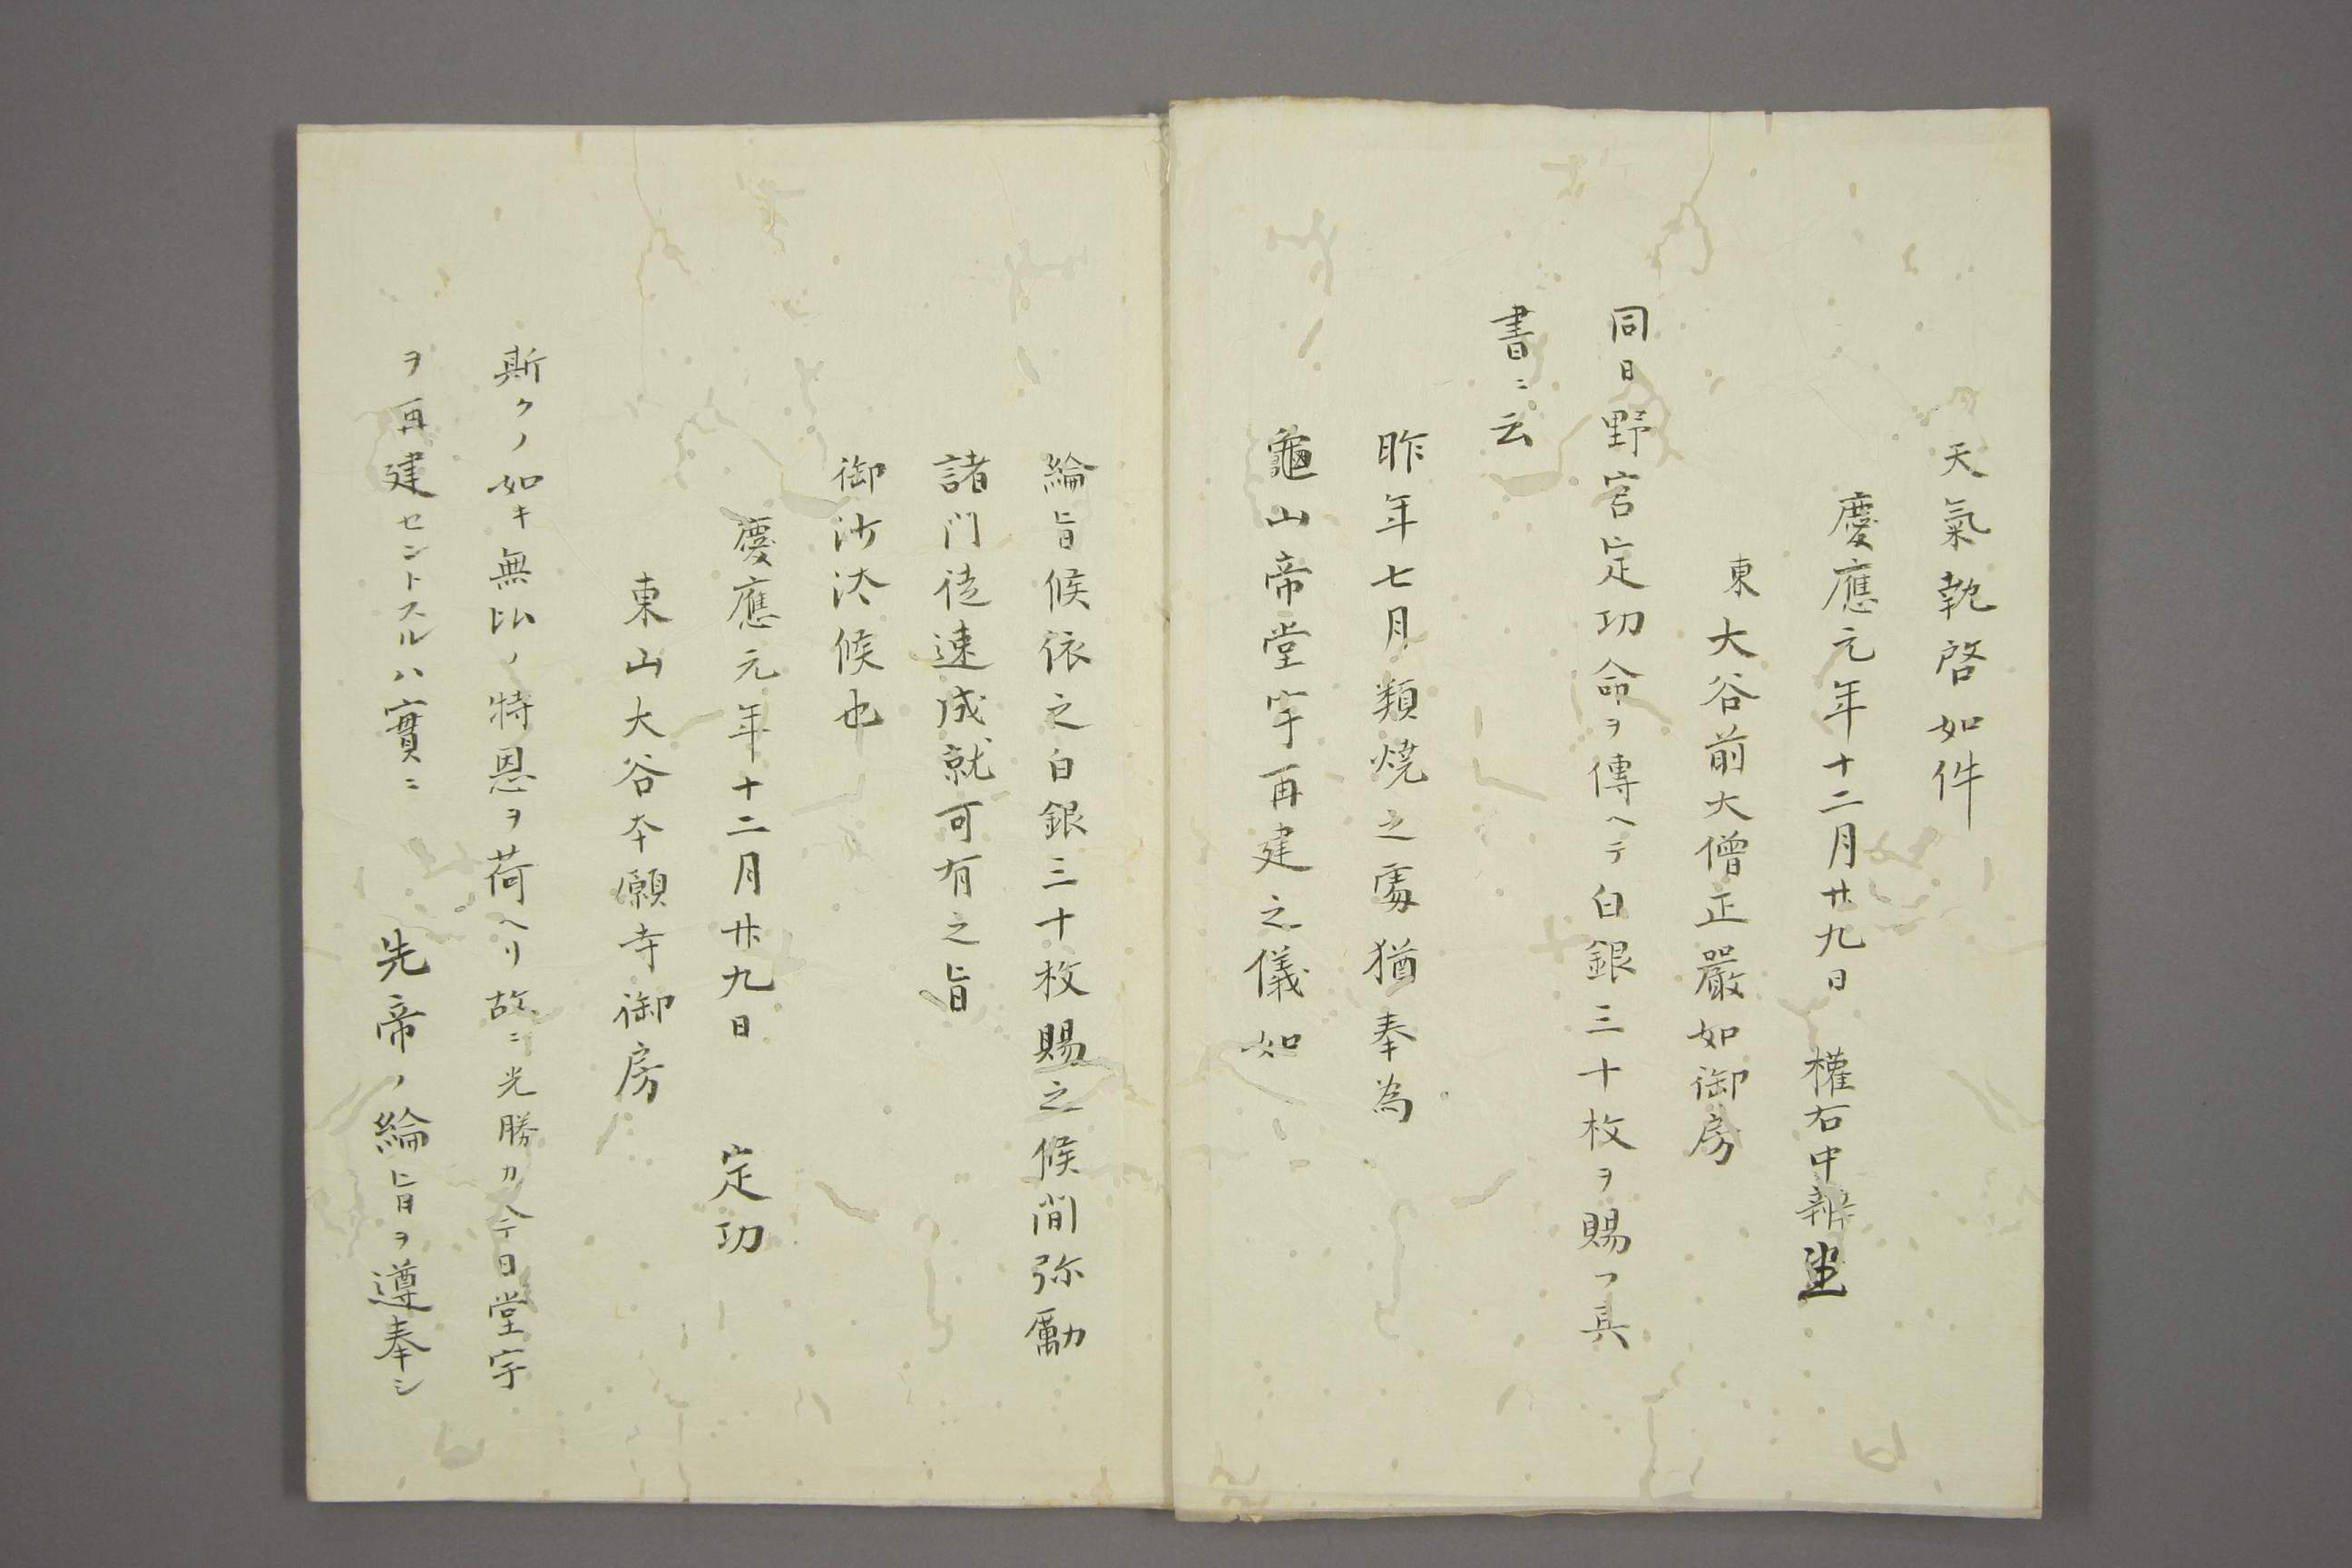 天氣執啓如件
慶應元年十二月廿九日　權右中辨
東大谷前大僧正嚴如御房
同日野宮定功命ヲ傳ヘテ白銀三十枚ヲ賜フ具
書ニ云
昨年七月類燒之處猶奉為
龜山帝堂宇再建之儀如
綸旨候依之白銀三十枚賜之候間弥勵
諸門徒速成就可有之旨
御沙汰候也
慶應元年十二月廿九日　定功
東山大谷本願寺御房
斯クノ如キ無比ノ特恩ヲ荷ヘリ故ニ光勝カ今日堂宇
ヲ再建セントスルハ實ニ　先帝ノ綸旨ヲ遵奉シ